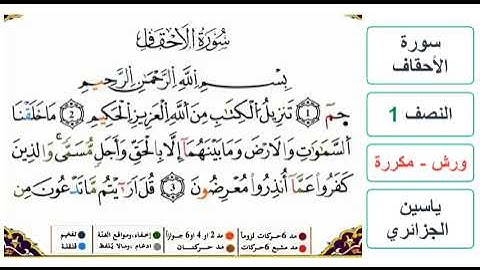 سورة الأحقاف
بِسْمِ اللَّهِ الرَّحْمَٰنِ الرَّحِيمِ
حم 1 تَنزِيلُ الْكِتَابِ مِنَ اللَّهِ الْعَزِيزِ الْحَكِيمِ 2 مَا خَلَقْنَا
السَّمَاوَاتِ وَالْأَرْضَ وَمَا بَيْنَهُمَا إِلَّا بِالْحَقِّ وَأَجَلٍ مُّسَمًّى وَالَّذِينَ
كَفَرُوا عَمَّا أُنذِرُوا مُعْرِضُونَ 3 قُلْ أَرَيْتُم مَّا تَدْعُونَ مِن
مد 6 حركات لزوما
مد 2 او 4 او 6 جوازا
إخفاء، ومواقع الغنة
تفخيم
مد مشبع 6 حركات
مد حركتان
ادغام، ومالا يلفظ
قلقلة
سورة
الأحقاف
النصف 1
ورش - مكررة
ياسين
الجزائري